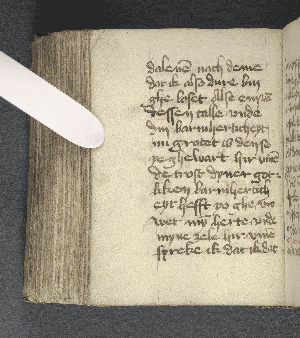 dalenē nach deme
dat ik also dure bin
ghe loset Alse
dessen talle vnde
din barmherticheyt
mi grotet is dense
ye ghelvart hir vm̄e
de trost dyner got
liken barmhertich
eyt hefft po ghe
wet myn herte vnde
myne zele hir vm̄e
spreke ik dat ik dat